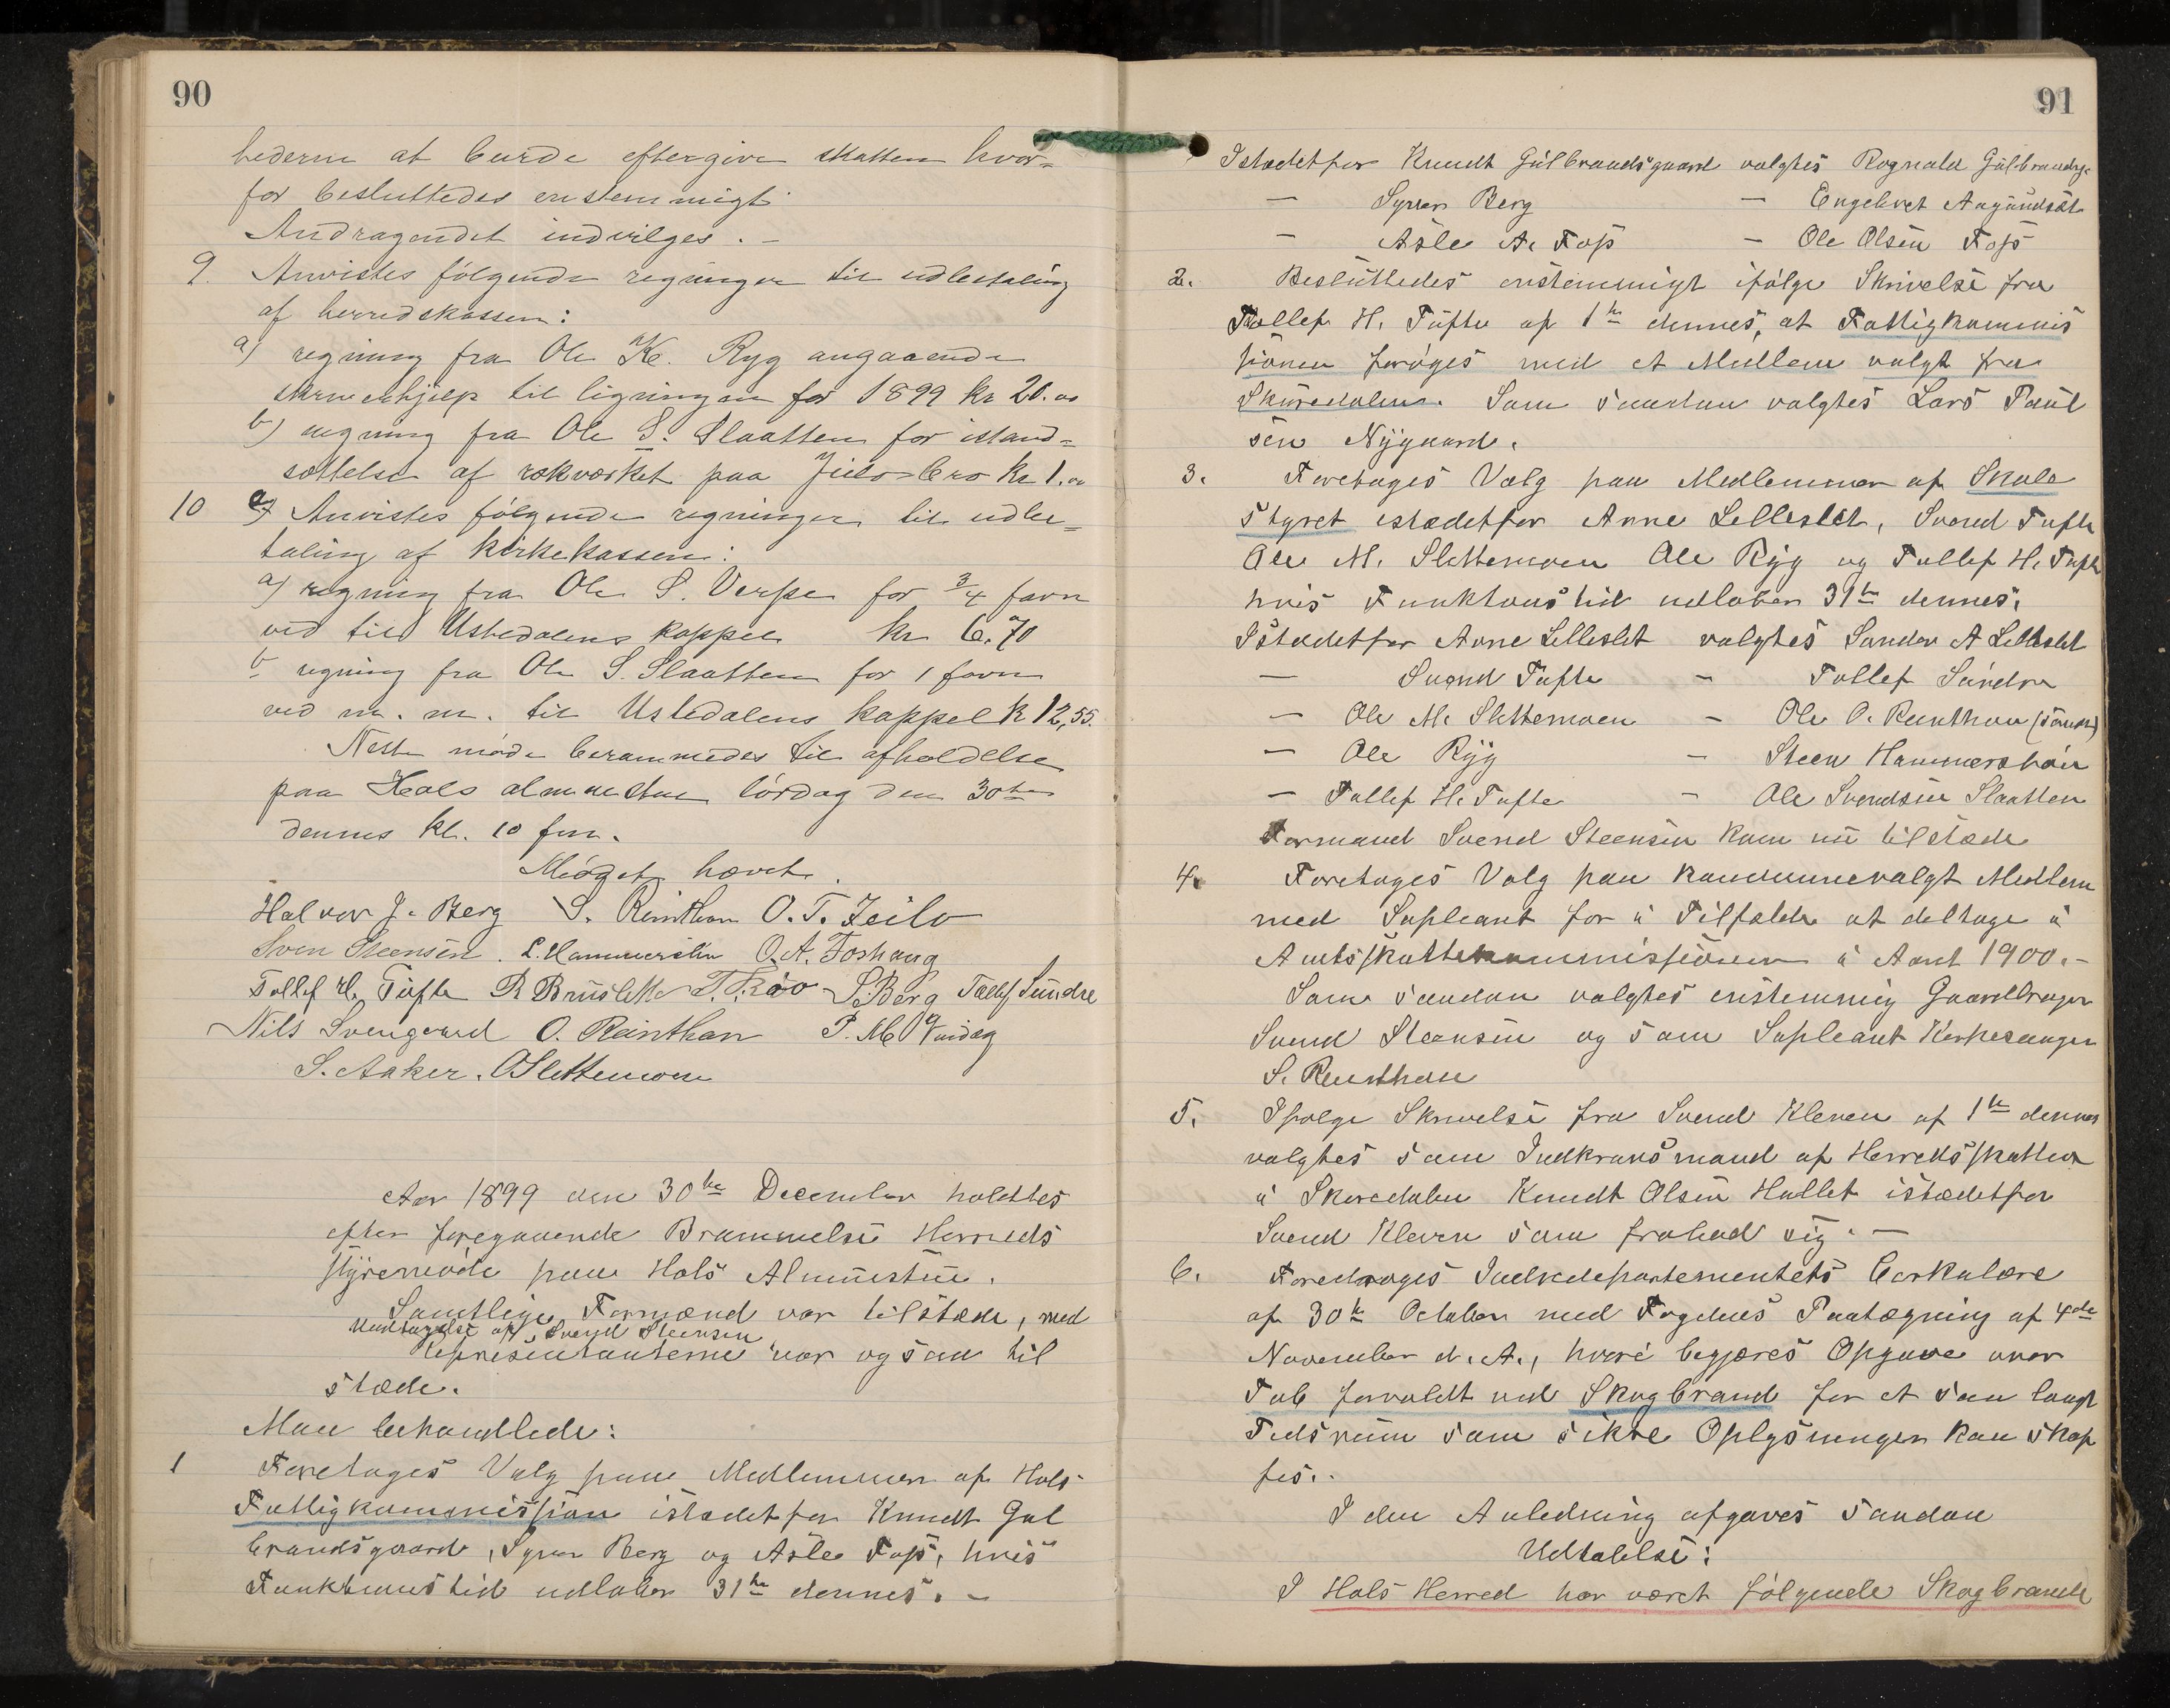 90
hederne at burde eftergive skatten hvor=
for besluttedes enstemmigt:
Andragendet indvilges. —
9. Anvistes følgende regninger til udbetaling
af herredskassen:
a) regning fra Ole K. Ryg angaaende
skriverhjelp til ligningen for 1899 kr 20.00
b) regning fra Ole S. Slaatten for istand=
sættelse af rækværket paa Jeilo bro kr 1.00
10 Anvistes følgende regninger til udbe=
taling af kirkekassen:
a) regning fra Ole S. Verpe for 3/4 favn
ved til Ustedalens kappel kr 6.70
b regning fra Ole S. Slaatten for 1 favn
ved m. m. til Ustedalens kappel kr 12,55.
Neste møde berammedes til afholdelse
paa Hols almuestue lørdag den 30te
dennes kl. 10 fm.
Mødet hævet.
Halvor J. Berg S. Reinthon O. T. Jeilo
Sven Steensen. L. Hammersbøn O. A. Foshaug
Tollef H. Tufte R Bruslette T. T. Røo S. Berg Tollef Sundre
Nils Svengaard O. Reinthon P. M.
S. Aaker. O Slettemoen
Aar 1899 den 30te December holdtes
efter foregaaende Brammelse Herreds
styremøde paa Hols Almuestue.
Samtlige Formænd var tilstæde, med
Undtagelse af Svend Steensen
Representanterne var ogsaa til
stæde.
Man behandlede:
1 Foretoges Valg paa Medlemmer af Hols
Fattigkommission istædetfor Knudt Gul
brandsgaard, Syver Berg og Asle Foss, hvis
Funktionstid udløber 31te dennes. —
91
Istædetfor Knudt Gulbrandsgaard valgtes Rognald Gulbrandsg.
— Syver Berg — Engebret Aagaundsæt
— Asle A. Foss — Ole Olsen Foss
2. Besluttedes enstemmigt ifølge Skrivelse fra
Tollef H. Tufte af 1te dennes, at Fattigkommis
sionen forøges med et Medlem valgt fra
Skuredalen. Som saadan valgtes Lars Paul
sen Nygaard.
3. Foretoges Valg paa Medlemmer af Skole
styret istædetfor Anne Lilleslet, Svend Tufte
Ole M. Slettemoen Ole Ryg og Tollef H. Tufte
hvis Funktonstid udløber 31te dennes.
Istædetfor Anne Lilleslet valgtes Sander A Lilleslet
— Svend Tufte — Tollef Sundre
— Ole M. Slettemoen — Ole O. Reinthon (Sundre)
— Ole Ryg — Steen Hammersbøn
— Tollef H. Tufte — Ole Svendsen Slaatten
Formand Svend Steensen kom nu tilstæde
4. Foretoges Valg paa kommunevalgt Medlem
med Supleant for i Tilfælde at deltage i
Amtsskattekommissionen i Aaret 1900. —
Som saadan valgtes enstemmig Gaardbruger
Svend Steensen og som Supleant Kirkesanger
S. Reinthon
5. Ifølge Skrivelse fra Svend Kleven af 1te dennes
valgtes som Indkrævsmand af Herredsskatten
i Skuredalen Knudt Olsen Hallet istædetfor
Svend Kleven som frabad sig. —
6. Foredroges Indredepartementets Cirkulære
af 30te October med Fogdens Paategning af 4de
November d. A., hvori begjæres Opgave over
Tab forvoldt ved Skogbrand for et saa langt
Tidsrum som sikre Oplysninger kan skaf
fes.
I den Anledning afgaves saadan
Udtalelse:
I Hols Herred har været følgende Skogbrande